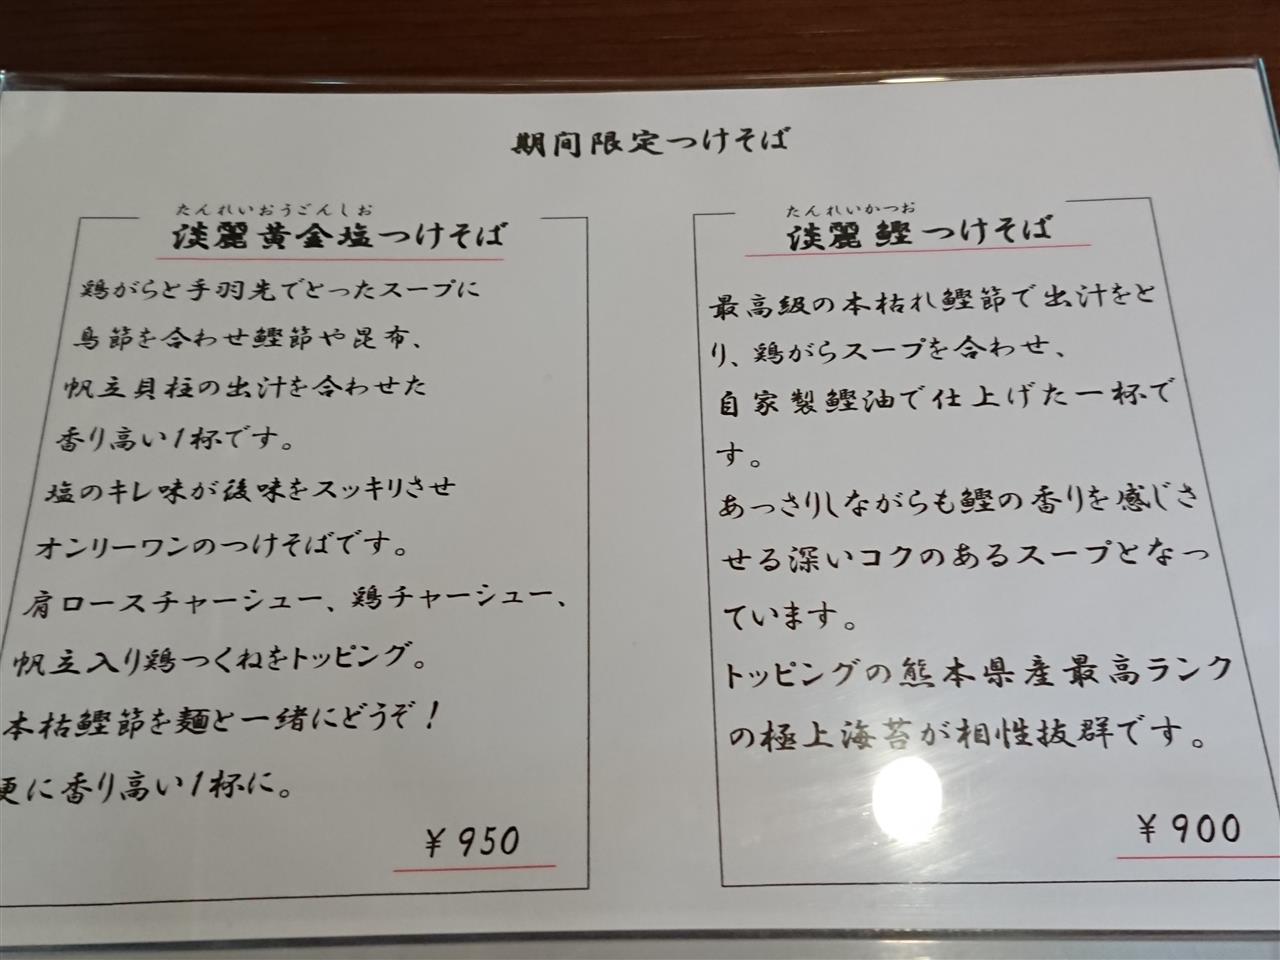 期间限定つけそば
たんれいおうごんしお
淡麗黄金塩つけそば
鶏がらと手羽先でとったスープに
鳥節を合わせ鰹節や昆布、
帆立貝柱の出汁を合わせた
香り高い1杯です。
塩のキレ味が後味をスッキリさせ
オンリーワンのつけそばです。
肩ロースチャーシュー、鶏チャーシュー、
帆立入り鶏つくねをトッピング。
本枯鰹節を麺と一緒にどうぞ！
更に香り高い1杯に。
￥950
たんれいかつお
淡麗鰹つけそば
最高級の本枯れ鰹節で出汁をと
り、鶏がらスープを合わせ、
自家製鰹油で仕上げた一杯で
す。
あっさりしながらも鰹の香りを感じさ
せる深いコクのあるスープとなっ
ています。
トッピングの熊本県産最高ランク
の極上海苔が相性抜群です。
￥900